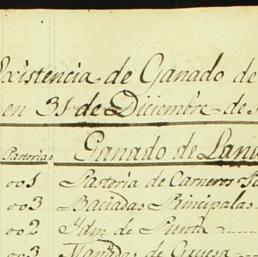 Existencia de Ganado de
en 31 de Diciembre de
Pastorias Ganado de Lan
001 Pastoria de Carneros
003 Baciadas Principalas
002 Ydm de Punta
003 de Gruesa